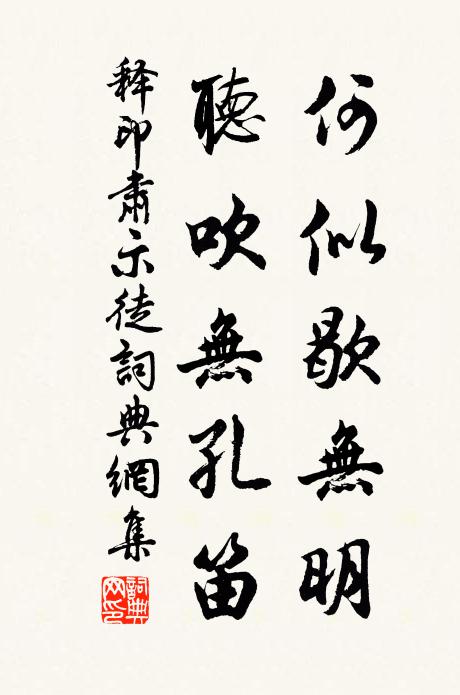 何似歇無明
聽吹無孔笛
释印肅示徒詞典網集
詞典網印